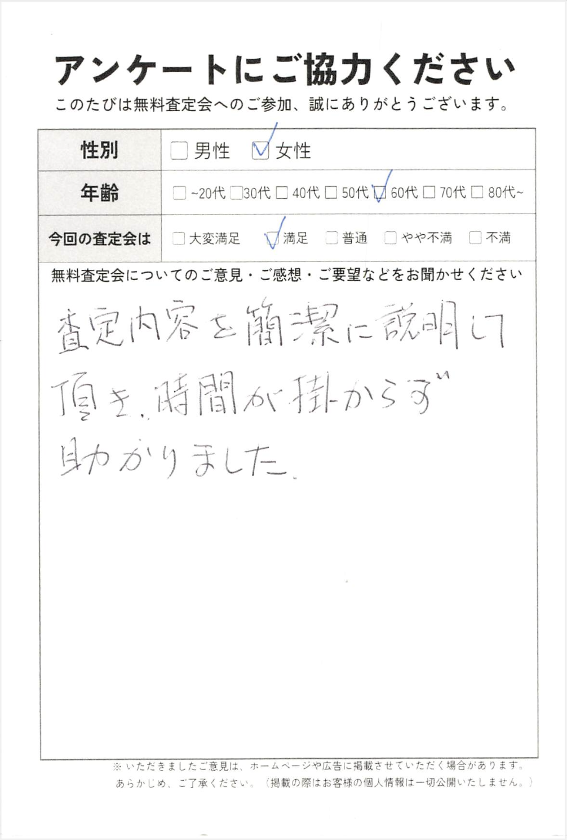 アンケートにご協力ください
このたびは無料査定会へのご参加、誠にありがとうございます。
性別 □ 男性 ☑ 女性
年齢 □ ~20代 □ 30代 □ 40代 □ 50代 ☑ 60代 □ 70代 □ 80代~
今回の査定会は □ 大変満足 ☑ 満足 □ 普通 □ やや不満 □ 不満
無料査定会についてのご意見・ご感想・ご要望などをお聞かせください
査定内容を簡潔に説明して
頂き、時間が掛からず
助かりました。
※ いただきましたご意見は、ホームページや広告に掲載させていただく場合があります。
あらかじめ、ご了承ください。（掲載の際はお客様の個人情報は一切公開いたしません。）